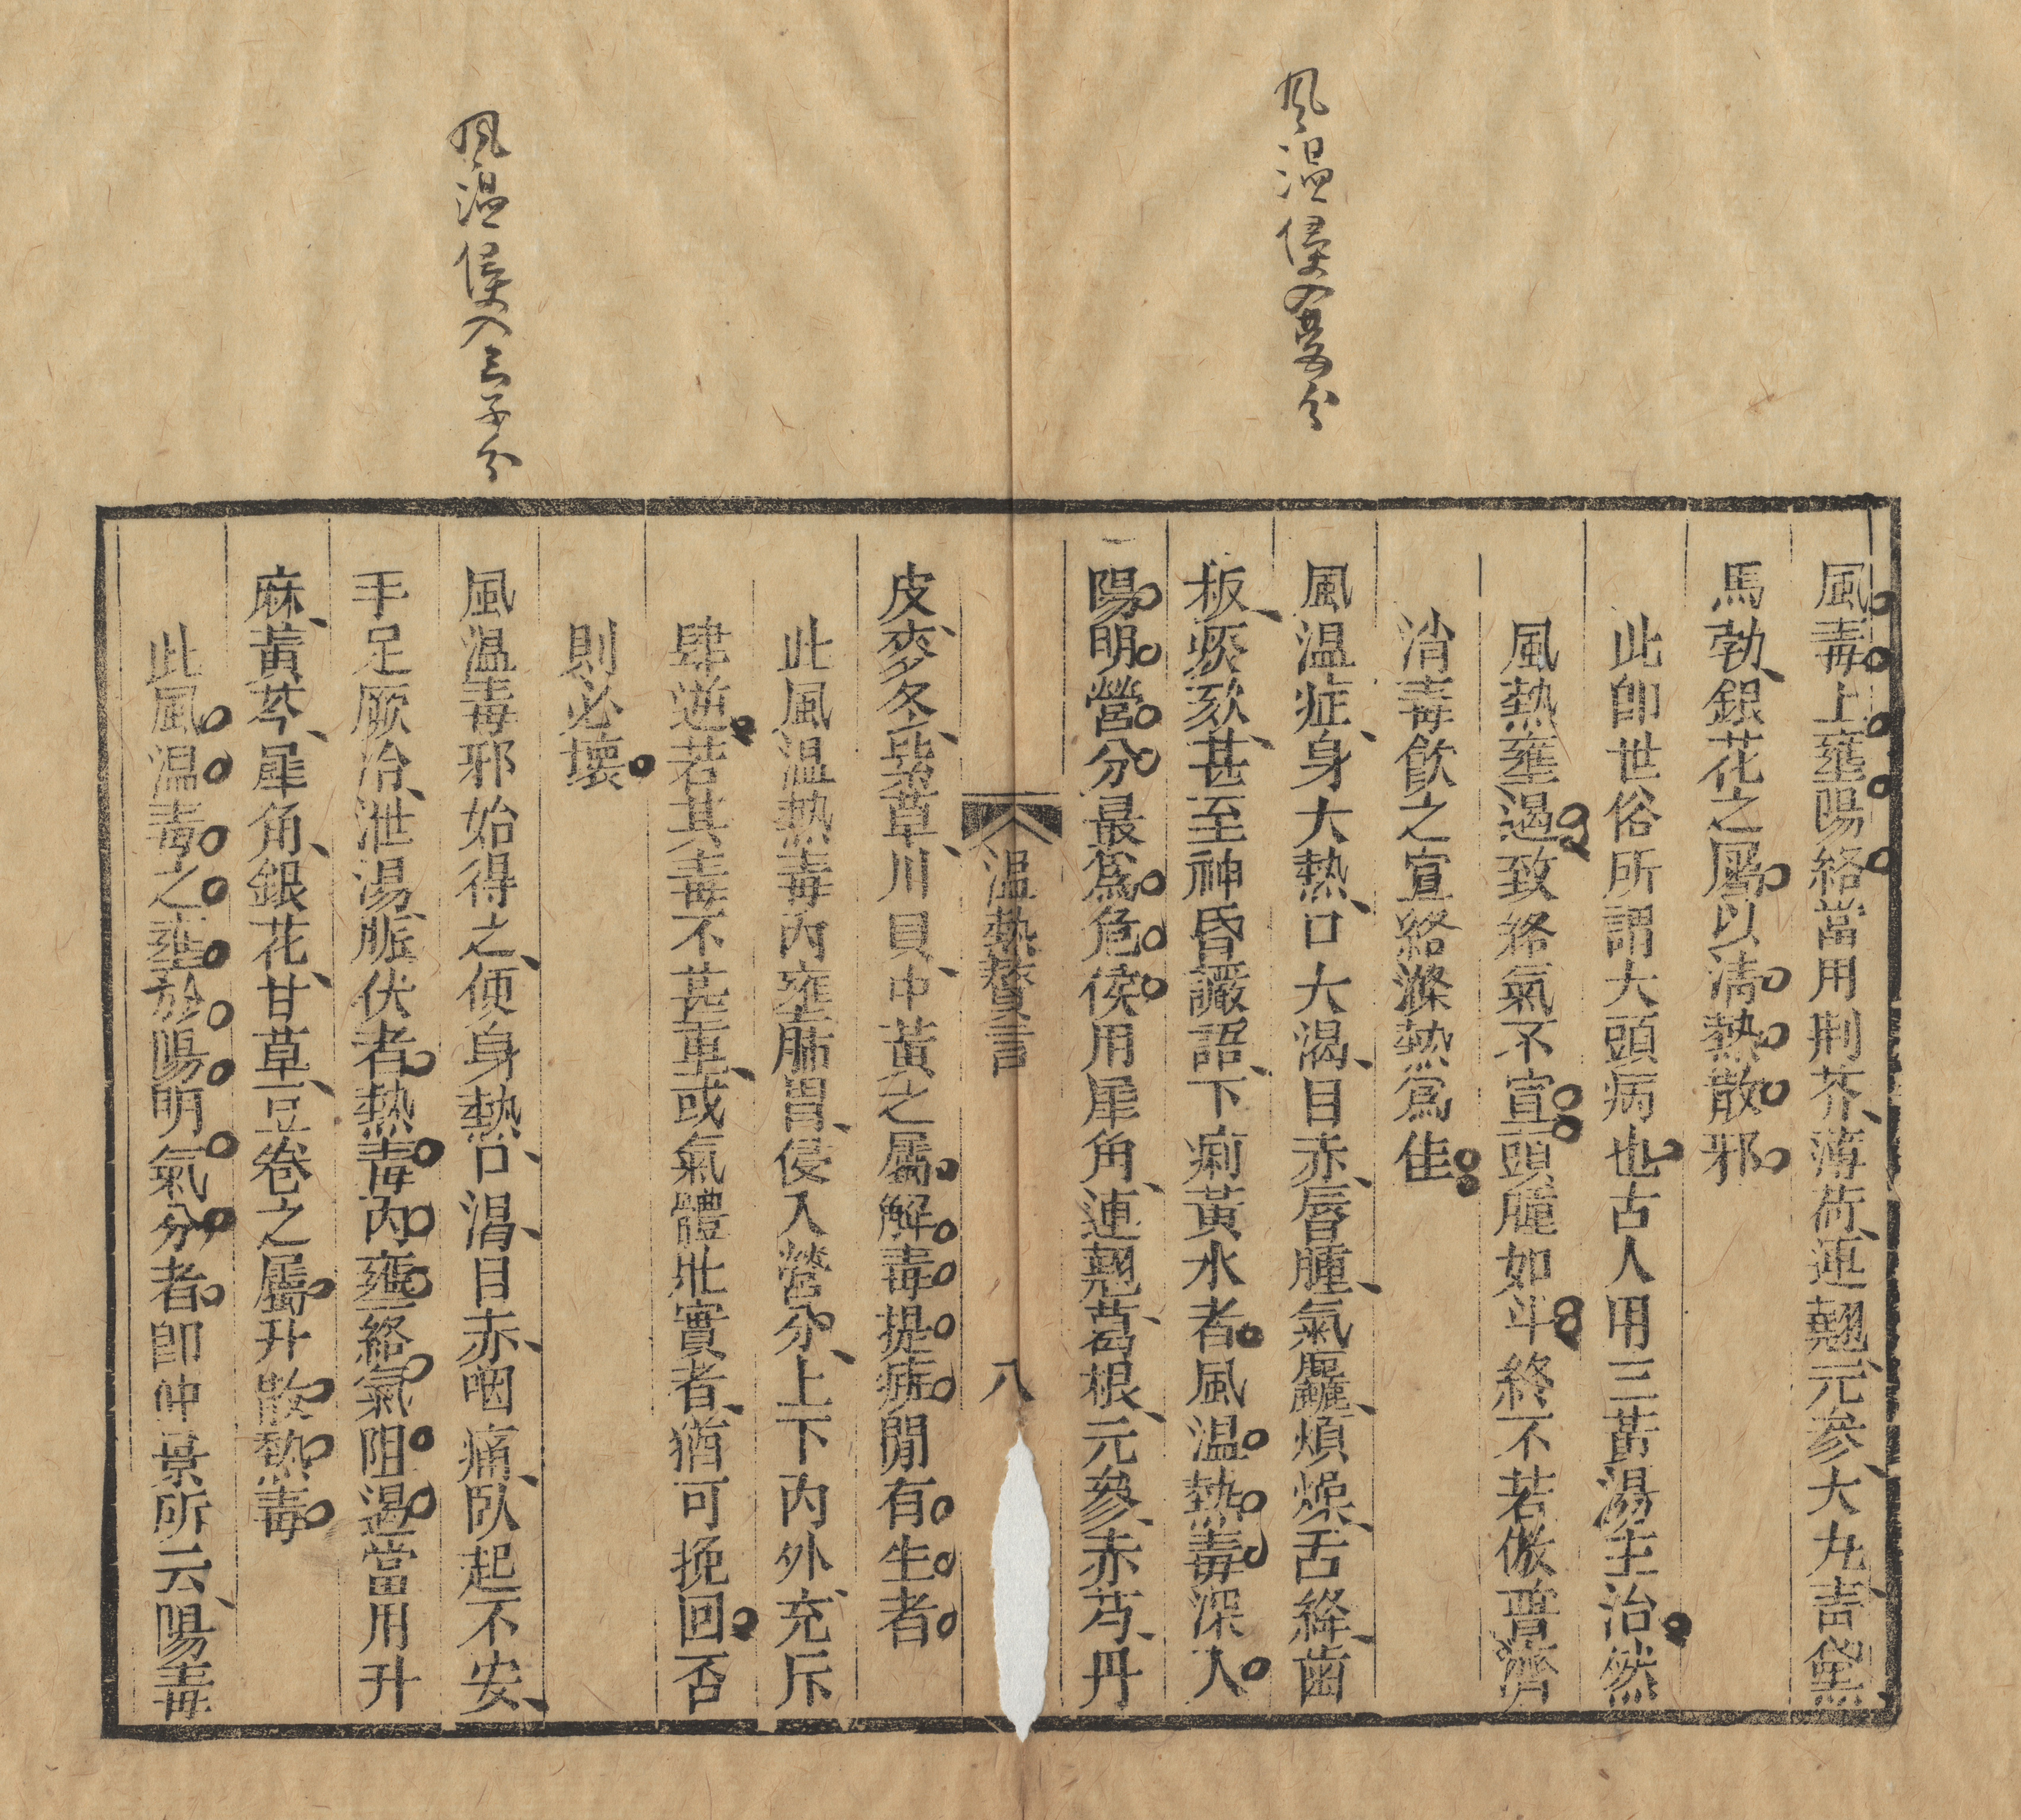 風溫侵入營分
風溫侵入三子分
風毒上壅陽絡當用荆芥、薄荷、連翹、元參、大九、青黛、
馬勃、銀花之屬以清熱散邪
此卽世俗所謂大頭病也古人用三黃湯主治然
風熱壅遏致絡氣不宣頭腫如斗終不若倣普濟
消毒飲之宣絡滌熱爲佳
風温症、身大熱、口大渴、目赤、唇腫、氣麤、煩燥、舌絳、齒
板、痰欬、甚至神昏讝語、下痢黃水者風温熱毒深入
陽明營分最爲危候用犀角、連翹、葛根、元參、赤芍、丹
温熱贅言
八
皮、麥冬、紫草、川貝、中黃之屬解毒提癍閒有生者
此風温熱毒內壅肺胃、侵入營分、上下內外、充斥
肆逆若其毒不甚重、或氣體壯實者、猶可挽回否
則必壞
風温毒邪始得之、便身熱、口渴、目赤、咽痛、臥起不安、
手足厥冷、泄湯、脈伏者熱毒內壅絡氣阻遏當用升
麻、黃芩、犀角、銀花、甘草、豆卷之屬升散熱毒
此風温毒之壅於陽明氣分者卽仲景所云、陽毒